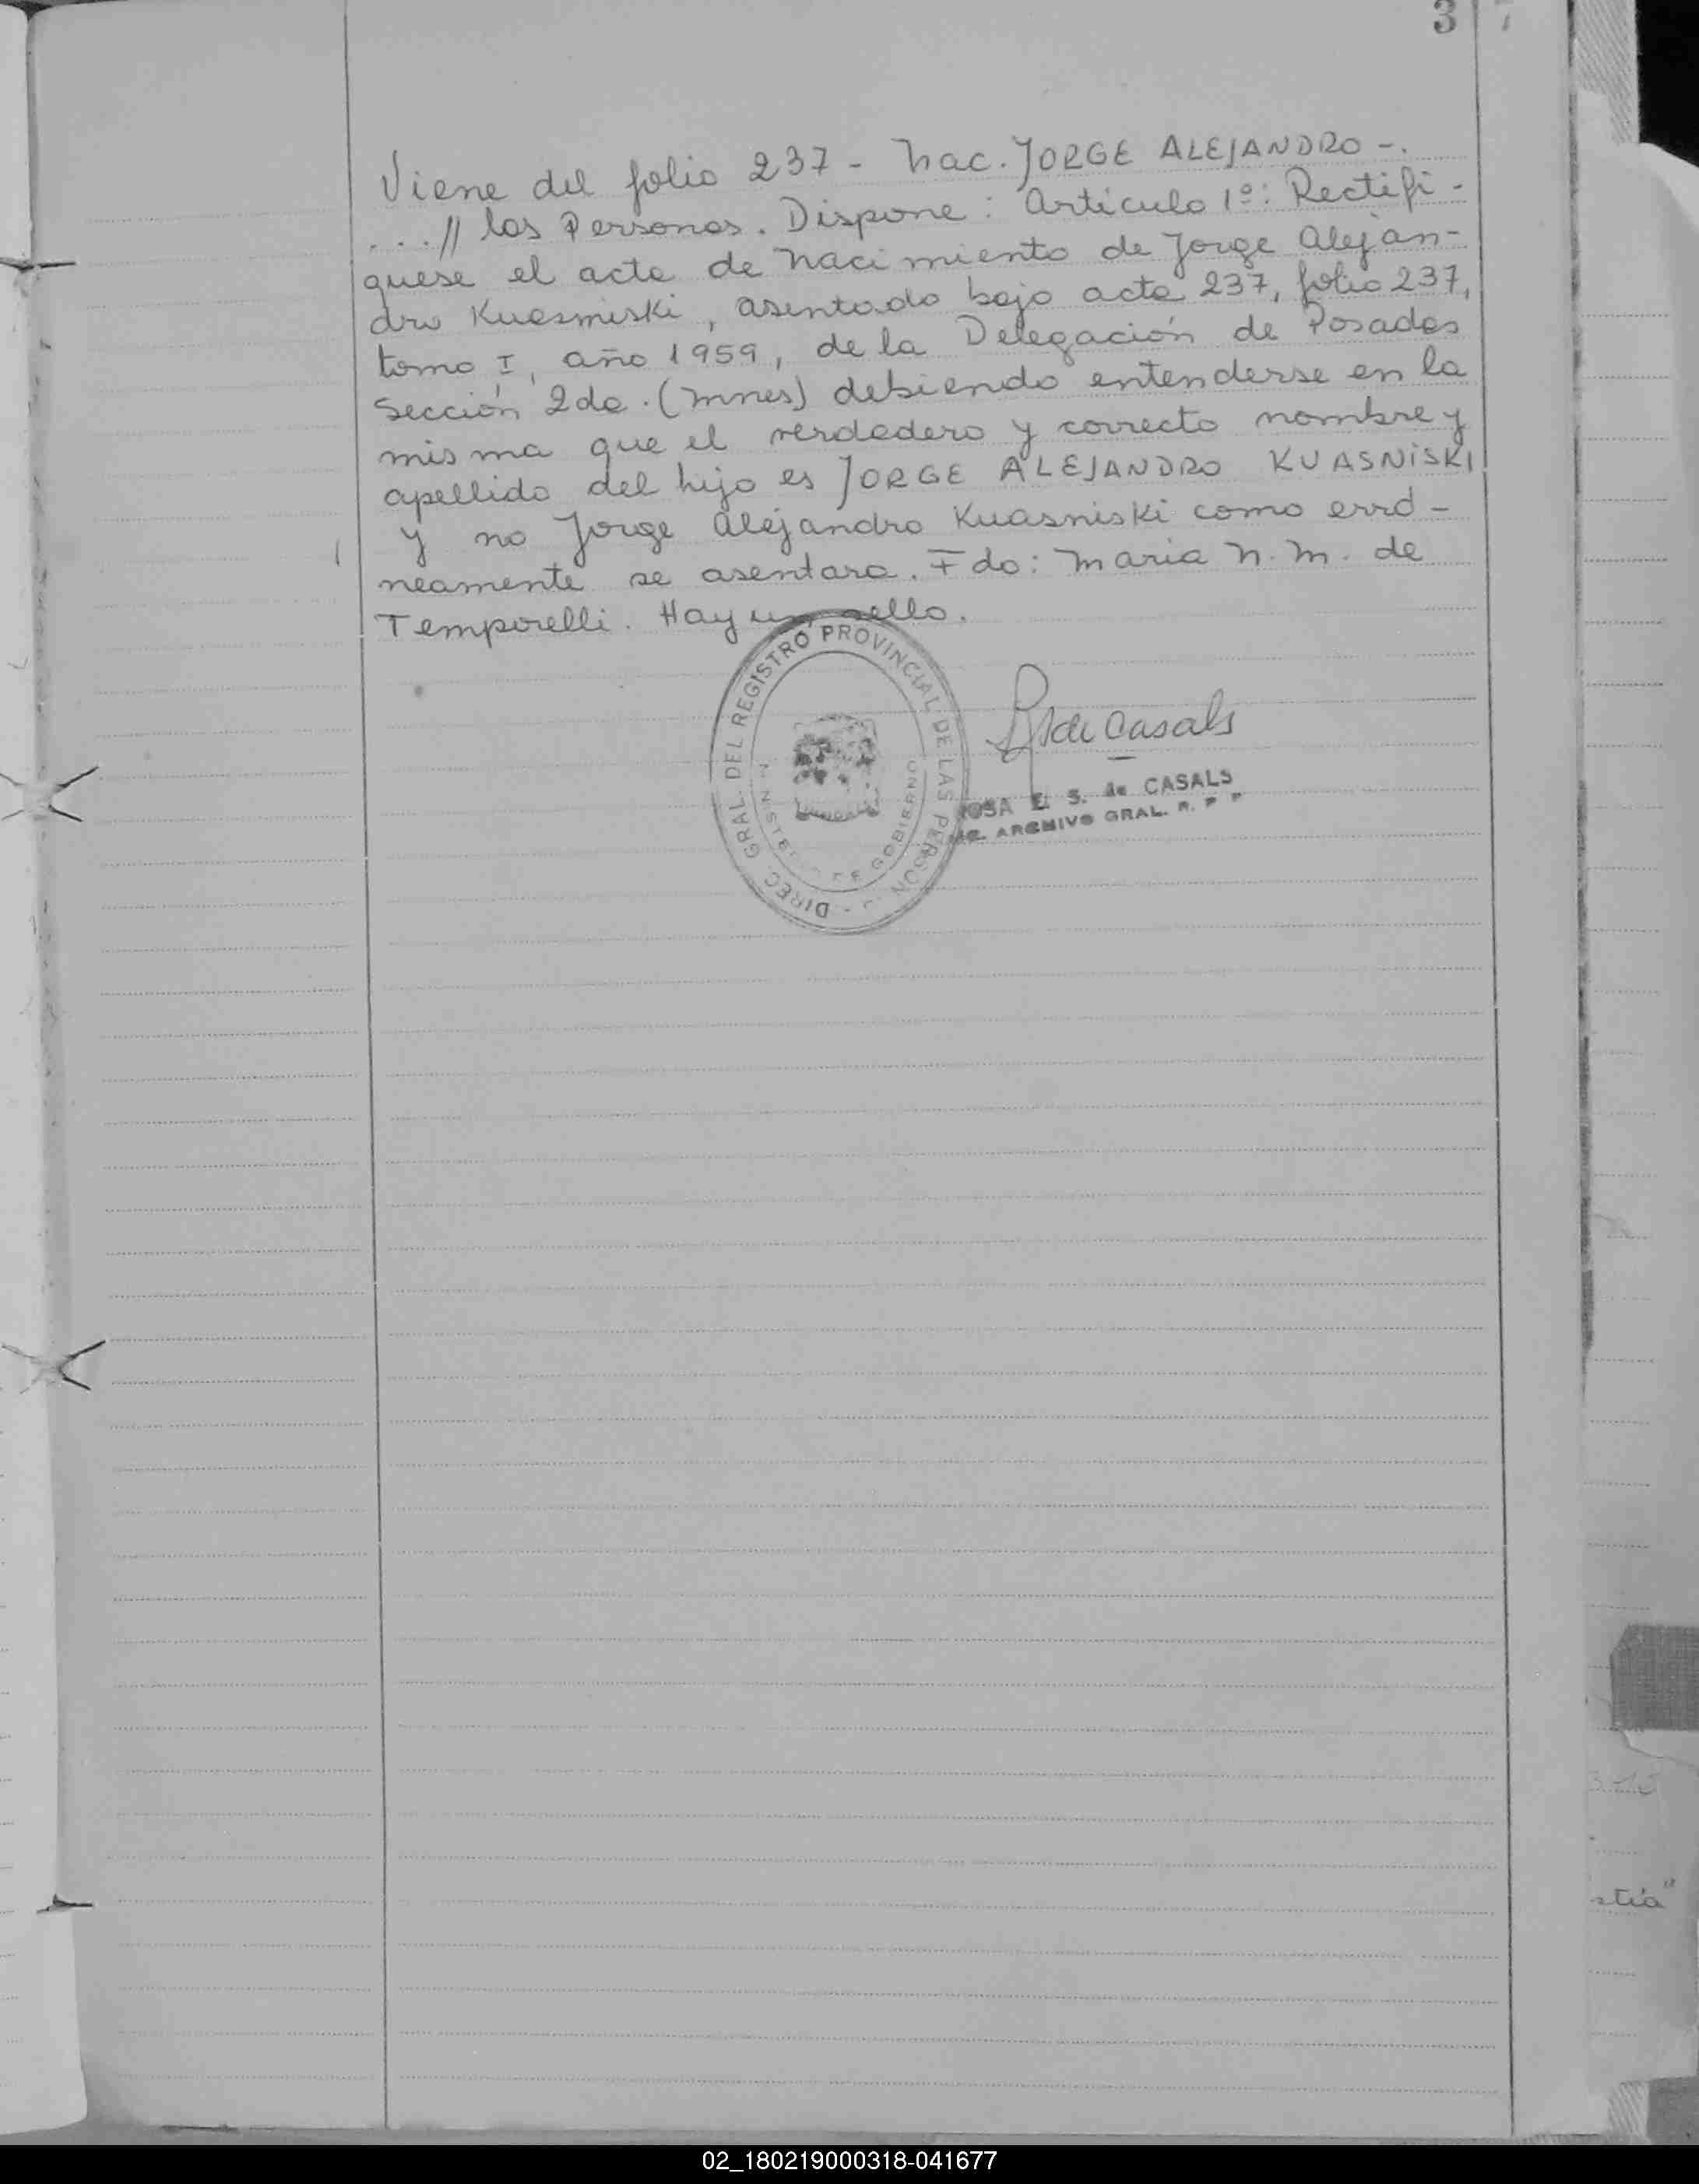 3
Viene del folio 237 - Nac. JORGE ALEJANDRO -.
...// las Personas. Dispone: Artículo 1º: Rectifi-
quese el acta de nacimiento de Jorge Alejan-
dro Kuasmiski, asentado bajo acta 237, folio 237,
tomo I, año 1959, de la Delegación de Posadas
Sección 2da. (Mnes) debiendo entenderse en la
misma que el verdadero y correcto nombre y
apellido del hijo es JORGE ALEJANDRO KUASNiSKI
y no Jorge Alejandro Kuasniski como erró-
neamente se asentara. Fdo: Maria N. M. de
Temporelli. Hay un sello.
DIREC. GRAL. DEL REGISTRO PROVINCIAL DE LAS PERSON
DE GOBIERNO
de Casals
ROSA E. S. de CASALS
ARCHIVO GRAL. R. P. P
stia"
02_180219000318-041677